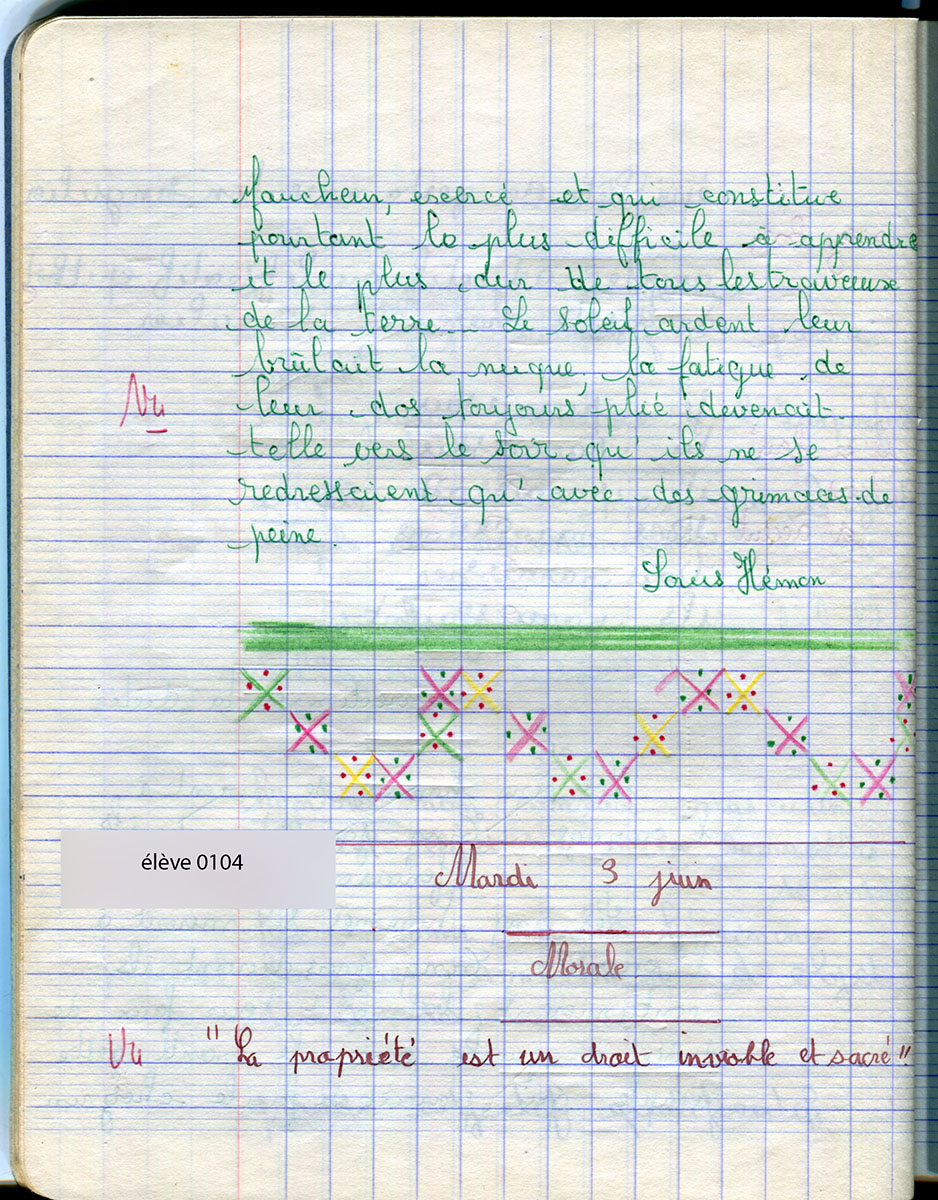 faucheur, exercé et qui constitue
pourtant le plus difficile à apprendre
et le plus dur de tous les travaux
de la terre. Le soleil ardent leur
brûlait la nuque, la fatigue de
Vu
leur dos toujours plié devenait
telle vers le soir qu'ils ne se
redressaient qu'avec des grimaces de
peine.
Louis Hémon
élève 0104
Mardi 3 juin
Morale
Vu "La propriété est un droit inviolable et sacré"